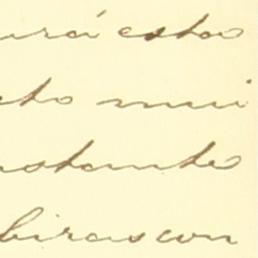 urá estas
cto mui
nstante
birascon